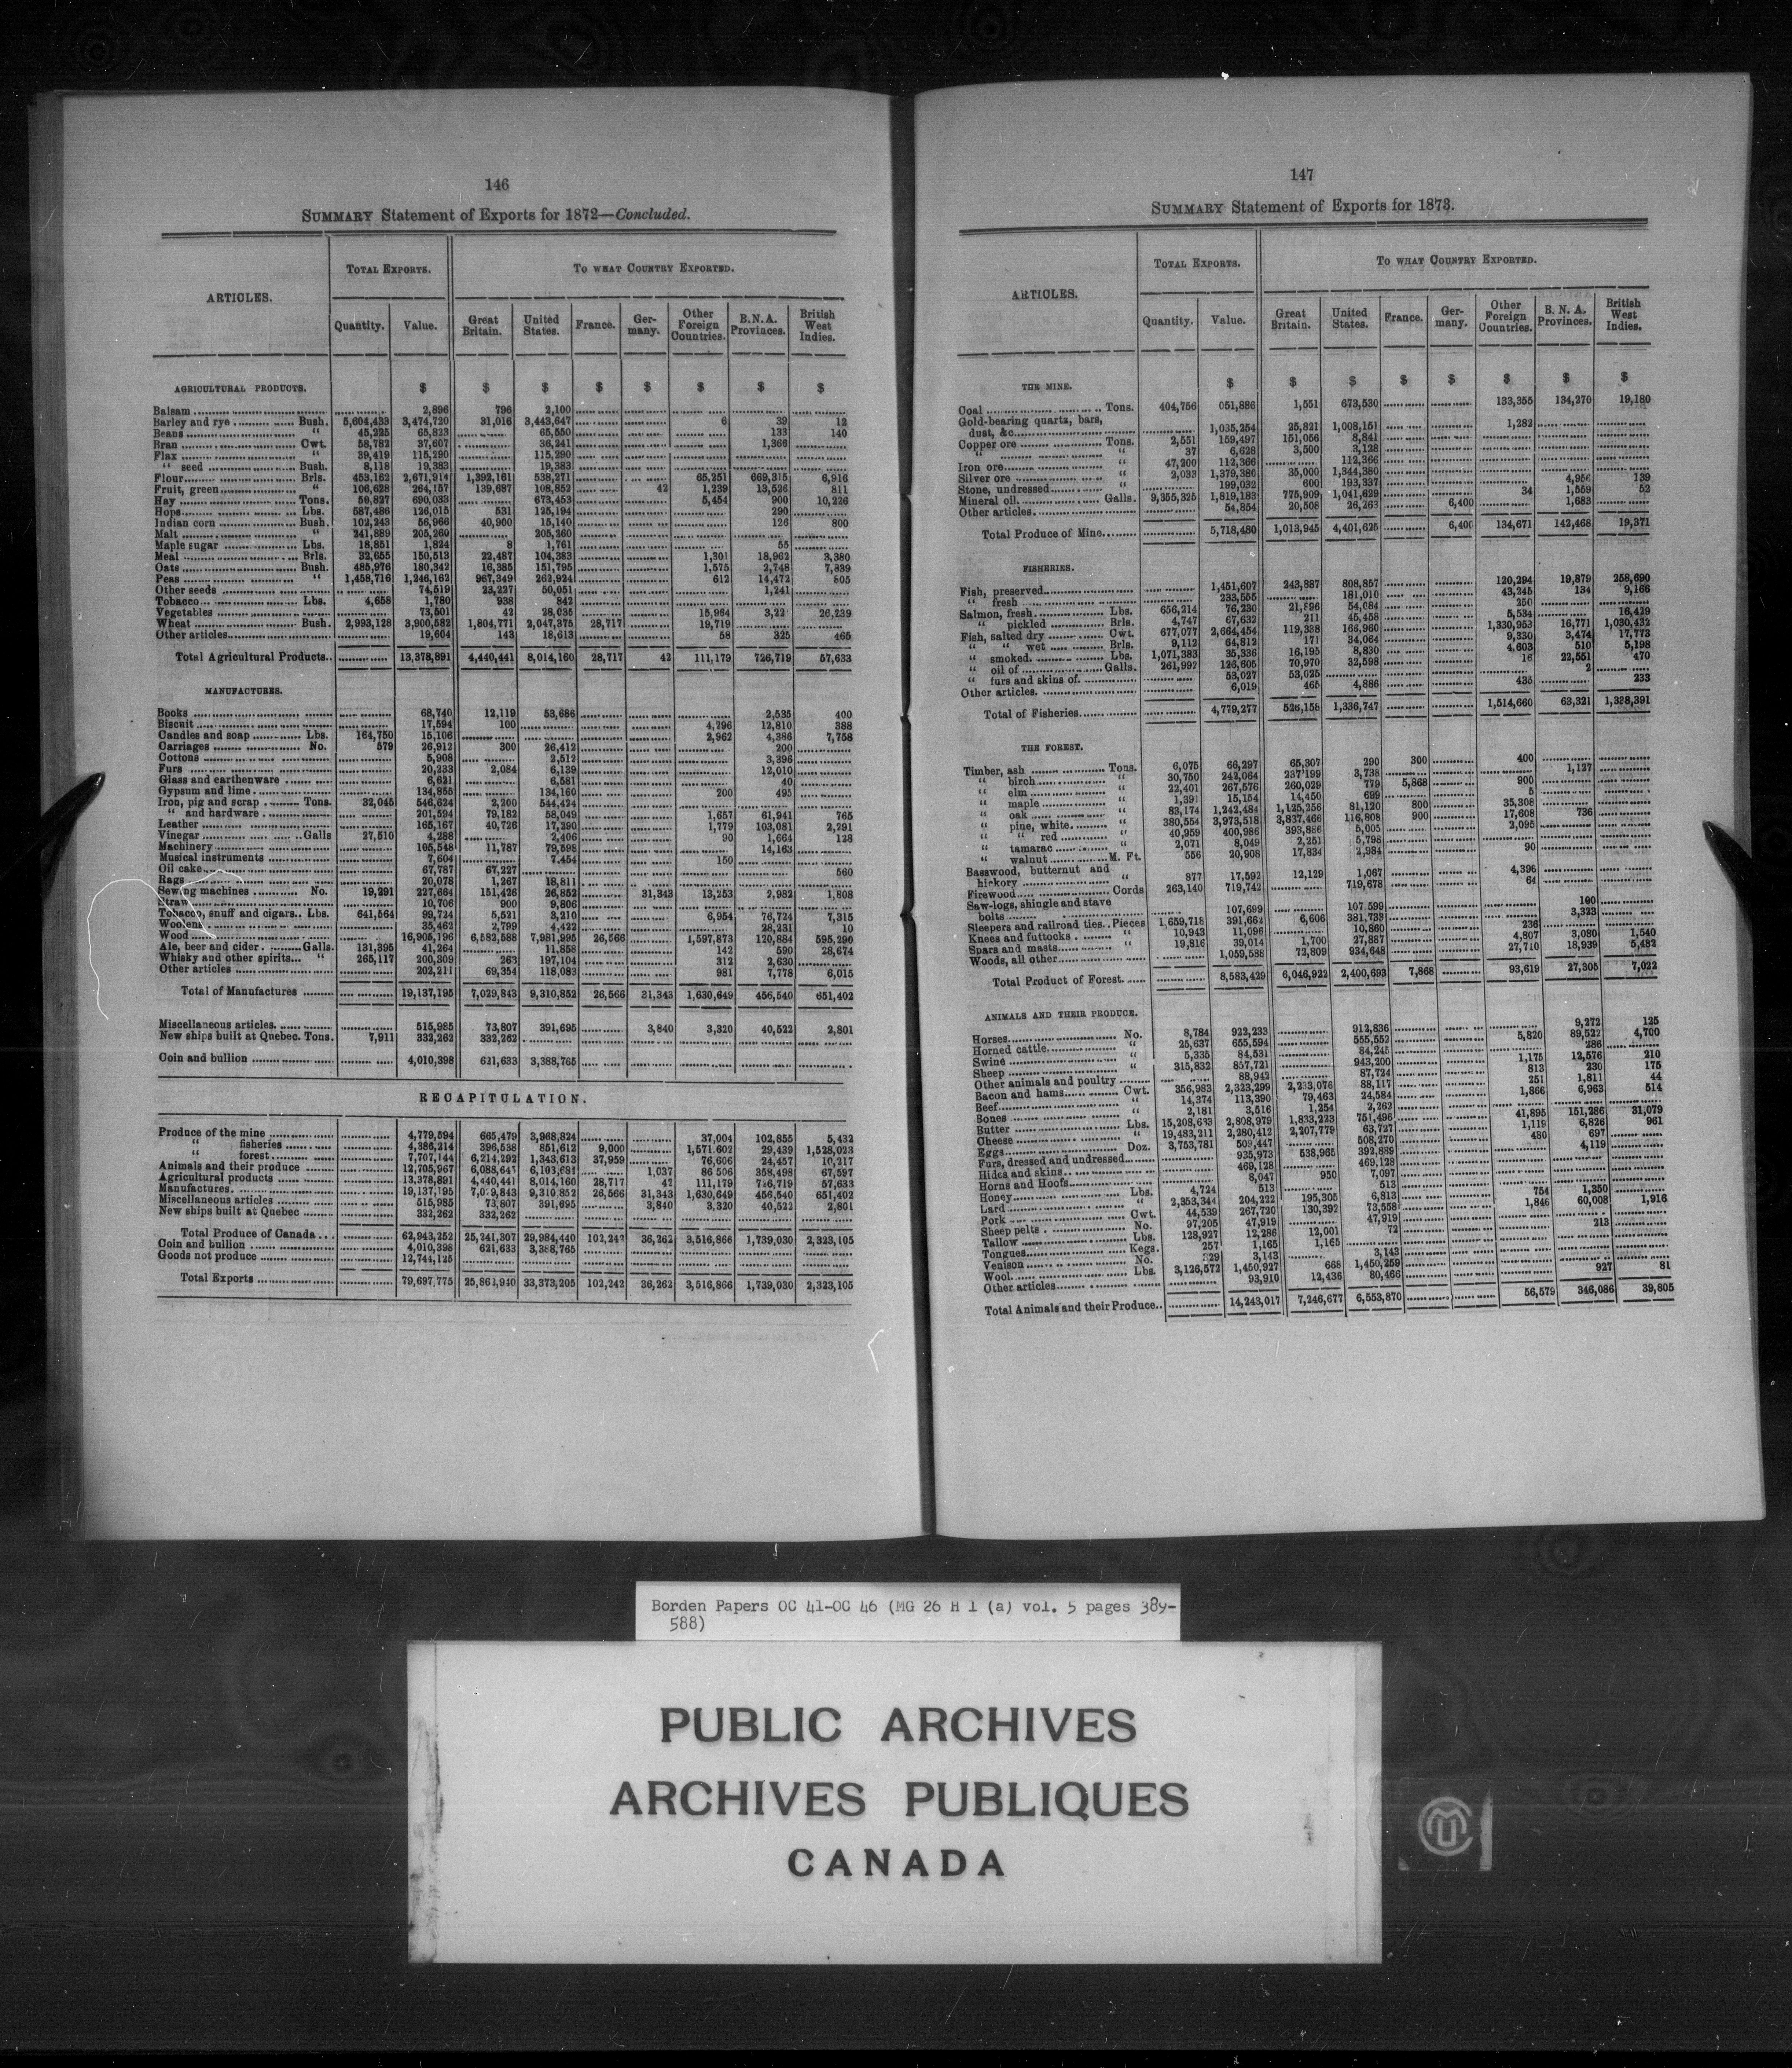 146
SUMMARY Statement of Exports for 1872—Concluded.
ARTICLES.
TOTAL EXPORTS.
TO WHAT COUNTRY EXPORTED.
Quantity. Value. Great Britain. United States. France. Germany. Other Foreign Countries. B.N.A. Provinces. British West Indies.
AGRICULTURAL PRODUCTS. $ $ $ $ $ $ $ $
Balsam 2,896 796 2,100
Barley and rye Bush. 5,604,433 3,474,720 31,016 3,443,647 6 39 12
Beans " 45,225 65,823 65,550 133 140
Bran Cwt. 58,782 37,607 36,241 1,366
Flax " 39,419 115,290 115,290
" seed Bush. 8,118 19,383 19,383
Flour Brls. 453,162 2,671,914 1,392,161 538,271 65,251 669,315 6,916
Fruit, green " 106,628 264,157 139,687 108,852 42 1,239 13,526 811
Hay Tons. 50,827 690,033 673,453 5,454 900 10,226
Hops Lbs. 587,486 126,015 531 125,194 290
Indian corn Bush. 102,243 56,966 40,900 15,140 126 800
Malt " 241,889 205,260 205,260
Maple sugar Lbs. 18,851 1,824 8 1,761 55
Meal Brls. 32,655 150,513 22,487 104,383 1,301 18,962 3,380
Oats Bush. 485,976 180,342 16,385 151,795 1,575 2,748 7,839
Peas " 1,458,716 1,246,162 967,349 262,924 612 14,472 805
Other seeds 74,519 23,227 50,051 1,241
Tobacco Lbs. 4,658 1,780 938 842
Vegetables 73,501 42 28,035 15,964 3,22 26,239
Wheat Bush. 2,993,128 3,900,582 1,804,771 2,047,375 28,717 19,719
Other articles 19,604 143 18,613 58 325 465
Total Agricultural Products 13,378,891 4,440,441 8,014,160 28,717 42 111,179 726,719 57,633
MANUFACTURES.
Books 68,740 12,119 53,686 2,535 400
Biscuit 17,594 100 4,296 12,810 388
Candles and soap Lbs. 164,750 15,106 2,962 4,386 7,758
Carriages No. 579 26,912 300 26,412 200
Cottons 5,908 2,512 3,396
Furs 20,233 2,084 6,139 12,010
Glass and earthenware 6,621 6,581 40
Gypsum and lime 134,855 134,160 200 495
Iron, pig and scrap Tons. 32,045 546,624 2,200 544,424
" and hardware 201,594 79,182 58,049 1,657 61,941 765
Leather 165,167 40,726 17,290 1,779 103,081 2,291
Vinegar Galls 27,510 4,288 2,406 90 1,664 128
Machinery 105,548 11,787 79,598 14,163
Musical instruments 7,604 7,454 150
Oil cake 67,787 67,227 560
Rags 20,078 1,267 18,811
Sewing machines No. 19,291 227,684 151,476 26,852 31,343 13,253 2,982 1,808
Straw 10,706 900 9,806
Tobacco, snuff and cigars Lbs. 641,564 99,724 5,521 3,210 6,954 76,724 7,315
Woolens 35,462 2,799 4,422 28,231 10
Wood 16,905,196 6,582,588 7,981,995 26,566 1,597,873 120,884 595,290
Ale, beer and cider Galls. 131,395 41,264 11,858 142 590 28,674
Whisky and other spirits " 265,117 200,309 263 197,104 312 2,630
Other articles 202,211 69,354 118,083 981 7,778 6,015
Total of Manufactures 19,137,195 7,029,843 9,310,852 26,566 31,343 1,630,649 456,540 651,402
Miscellaneous articles 515,985 73,807 391,695 3,840 3,320 40,522 2,801
New ships built at Quebec. Tons. 7,911 332,262 332,262
Coin and bullion 4,010,398 621,633 3,388,765
RECAPITULATION.
Produce of the mine 4,779,594 665,479 3,968,824 37,004 102,855 5,432
" fisheries 4,386,214 396,538 851,612 9,000 1,571,602 29,439 1,528,023
" forest 7,707,144 6,214,292 1,343,613 37,959 76,606 24,457 10,217
Animals and their produce 12,705,967 6,088,641 6,103,681 1,037 86,506 358,498 67,597
Agricultural products 13,378,891 4,440,441 8,014,160 28,717 42 111,179 726,719 57,633
Manufactures 19,137,195 7,029,843 9,310,852 26,566 31,343 1,630,649 456,540 651,402
Miscellaneous articles 515,985 73,807 391,695 3,840 3,320 40,522 2,801
New ships built at Quebec 332,262 332,262
Total Produce of Canada 62,943,252 25,241,307 29,984,440 102,242 36,262 3,516,866 1,739,030 2,323,105
Coin and bullion 4,010,398 621,633 3,388,765
Goods not produce 12,744,125
Total Exports 79,697,775 25,862,940 33,373,205 102,242 36,262 3,516,866 1,739,030 2,323,105
147
SUMMARY Statement of Exports for 1873.
ARTICLES.
TOTAL EXPORTS.
TO WHAT COUNTRY EXPORTED.
Quantity. Value. Great Britain. United States. France. Germany. Other Foreign Countries. B. N. A. Provinces. British West Indies.
THE MINE. $ $ $ $ $ $ $ $
Coal Tons. 404,756 051,886 1,551 673,530 133,355 134,270 19,180
Gold-bearing quartz, bars,
dust, &c. 1,035,254 25,821 1,008,151 1,282
Copper ore Tons. 2,551 159,497 151,056 8,841
" " 37 6,628 3,500 3,128
Iron ore " 47,200 112,366 112,366
Silver ore " 2,033 1,379,380 35,000 1,344,380
Stone, undressed " 199,032 600 193,337 4,956 139
Mineral oil Galls. 9,355,325 1,819,183 775,909 1,041,629 34 1,559 52
Other articles 54,854 20,508 26,263 6,400 1,683
Total Produce of Mine 5,718,480 1,013,945 4,401,625 6,400 134,671 142,468 19,371
FISHERIES.
Fish, preserved 1,451,607 243,887 808,857 120,294 19,879 258,690
" fresh 233,555 181,010 43,245 134 9,166
Salmon, fresh Lbs. 656,214 76,230 21,896 54,084 250
" pickled Brls. 4,747 67,632 211 45,458 5,534 16,429
Fish, salted dry Cwt. 677,077 2,664,454 119,338 166,960 1,330,953 16,771 1,030,432
" " wet Brls. 9,112 64,812 171 34,064 9,330 3,474 17,773
" smoked Lbs. 1,071,383 35,336 16,195 8,830 4,603 510 5,198
" oil of Galls. 261,992 126,605 70,970 32,598 16 22,551 470
" furs and skins of 53,027 53,025 2
Other articles 6,019 465 4,886 435 233
Total of Fisheries 4,779,277 526,158 1,336,747 1,514,660 63,321 1,338,391
THE FOREST.
Timber, ash Tons. 6,075 66,297 65,307 290 300 400
" birch " 30,750 242,064 237,199 3,738 1,127
" elm " 22,401 267,576 260,029 779 5,868 900
" maple " 1,391 15,154 14,450 699 5
" oak " 83,174 1,242,484 1,125,256 81,120 800 35,308
" pine, white " 380,554 3,973,518 3,837,466 116,808 900 17,608 736
" " red " 40,959 400,986 393,886 5,005 2,095
" tamarac " 2,071 8,049 2,251 5,798
" walnut M. Ft. 556 20,908 17,834 2,984 90
Basswood, butternut and
hickory " 877 17,592 12,129 1,067 4,396
Firewood Cords 263,140 719,742 719,678 64
Saw-logs, shingle and stave
bolts 107,699 107,599 100
Sleepers and railroad ties Pieces 1,659,718 391,662 6,606 381,733 3,323
Knees and futtocks " 10,943 11,096 10,860 236
Spars and masts " 19,816 39,014 1,700 27,887 4,807 3,080 1,540
Woods, all other 1,059,588 72,809 934,648 27,710 18,939 5,482
Total Product of Forest 8,583,429 6,046,922 2,400,693 7,868 93,619 27,305 7,022
ANIMALS AND THEIR PRODUCE.
Horses No. 8,784 922,233 912,836 9,272 125
Horned cattle " 25,637 655,594 555,552 5,820 89,522 4,700
Swine " 5,335 84,531 84,245 286
Sheep " 315,832 857,721 943,200 1,175 12,576 210
Other animals and poultry 88,942 87,724 813 230 175
Bacon and hams Cwt. 356,983 2,323,299 2,233,076 88,117 251 1,811 44
Beef " 14,374 113,390 79,463 24,584 1,866 6,963 514
Bones " 2,181 3,516 1,254 2,262
Butter Lbs. 15,208,633 2,808,979 1,833,223 751,496 41,895 151,286 31,079
Cheese " 19,483,211 2,280,412 2,207,779 63,727 1,119 6,826 961
Eggs Doz. 3,753,781 509,447 508,270 480 697
Furs, dressed and undressed 935,973 538,965 392,889 4,119
Hides and skins 469,128 469,128
Horns and Hoofs 8,047 950 7,097
Honey Lbs. 4,724 513 513
Lard " 2,353,344 204,222 195,305 6,813 754 1,350
Pork Cwt. 44,539 267,720 130,392 73,558 1,846 60,008 1,916
Sheep pelts No. 97,205 47,919 47,919
Tallow Lbs. 128,927 12,286 12,001 72 213
Tongues Kegs. 257 1,165 1,165
Venison No. 329 3,143 3,143
Wool Lbs. 3,126,572 1,450,927 668 1,450,259
Other articles 93,910 12,436 80,466 927 81
Total Animals and their Produce 14,243,017 7,246,677 6,553,870 56,579 346,086 39,805
Borden Papers OC 41-OC 46 (MG 26 H 1 (a) vol. 5 pages 389-
588)
PUBLIC ARCHIVES
ARCHIVES PUBLIQUES
CANADA